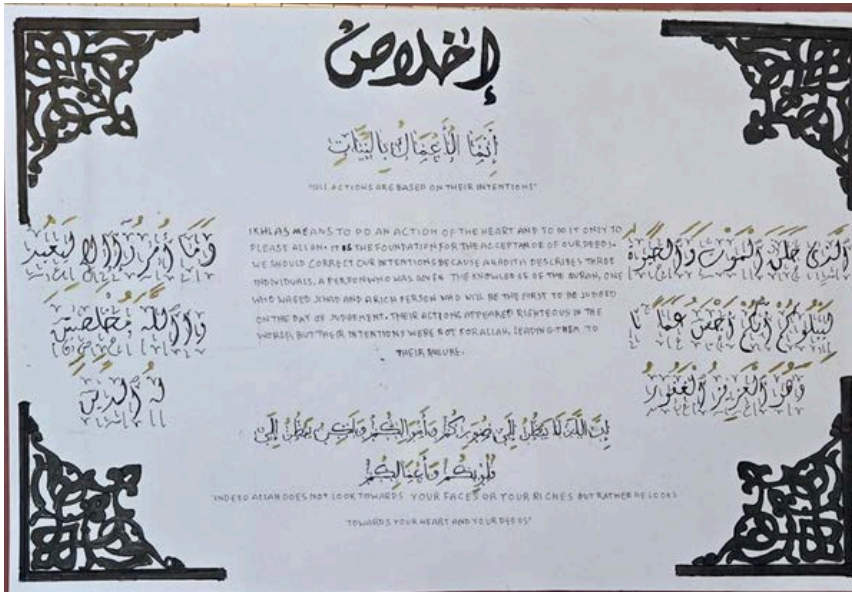 إخلاص
إنما الأعمال بالنيات
"ALL ACTIONS ARE BASED ON THEIR INTENTIONS"
IKHLAS MEANS TO DO AN ACTION OF THE HEART AND TO DO IT ONLY TO
PLEASE ALLAH. IT IS THE FOUNDATION FOR THE ACCEPTANCE OF OUR DEEDS.
WE SHOULD CORRECT OUR INTENTIONS BECAUSE A HADITH DESCRIBES THREE
INDIVIDUALS, A PERSON WHO WAS GIVEN THE KNOWLEDGE OF THE QURAN, ONE
WHO WAGED JIHAD AND A RICH PERSON WHO WILL BE THE FIRST TO BE JUDGED
ON THE DAY OF JUDGEMENT. THEIR ACTIONS APPEARED RIGHTEOUS IN THE
WORLD, BUT THEIR INTENTIONS WERE NOT FOR ALLAH, LEADING THEM TO
THEIR FAILURE.
الذى خلق الموت والحيوة
ليبلوكم أيكم أحسن عملا
وهو العزيز الغفور
وما أمروا إلا ليعبد
والله مخلصين
له الدين
إن الله لا ينظر إلى صوركم وأموالكم ولكن ينظر إلى
قلوبكم وأعمالكم
"INDEED ALLAH DOES NOT LOOK TOWARDS YOUR FACES OR YOUR RICHES BUT RATHER HE LOOKS
TOWARDS YOUR HEART AND YOUR DEEDS"